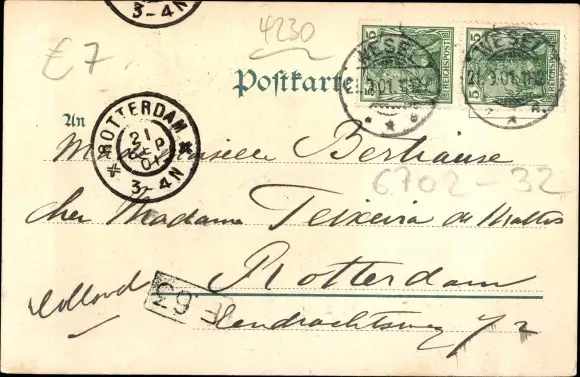 3-4N
4230
£7
5 REICHSPOST 5
5 REICHSPOST 5
WESEL
21.9.01.
WESEL
21.9.01.
Postkarte
An
ROTTERDAM
21
SEP
01
3-4N
Mademoiselle Berthause
6702-32
chez Madame Teixeira de Mattos
Rotterdam
Holland
E 63
Eendrachtsweg 72